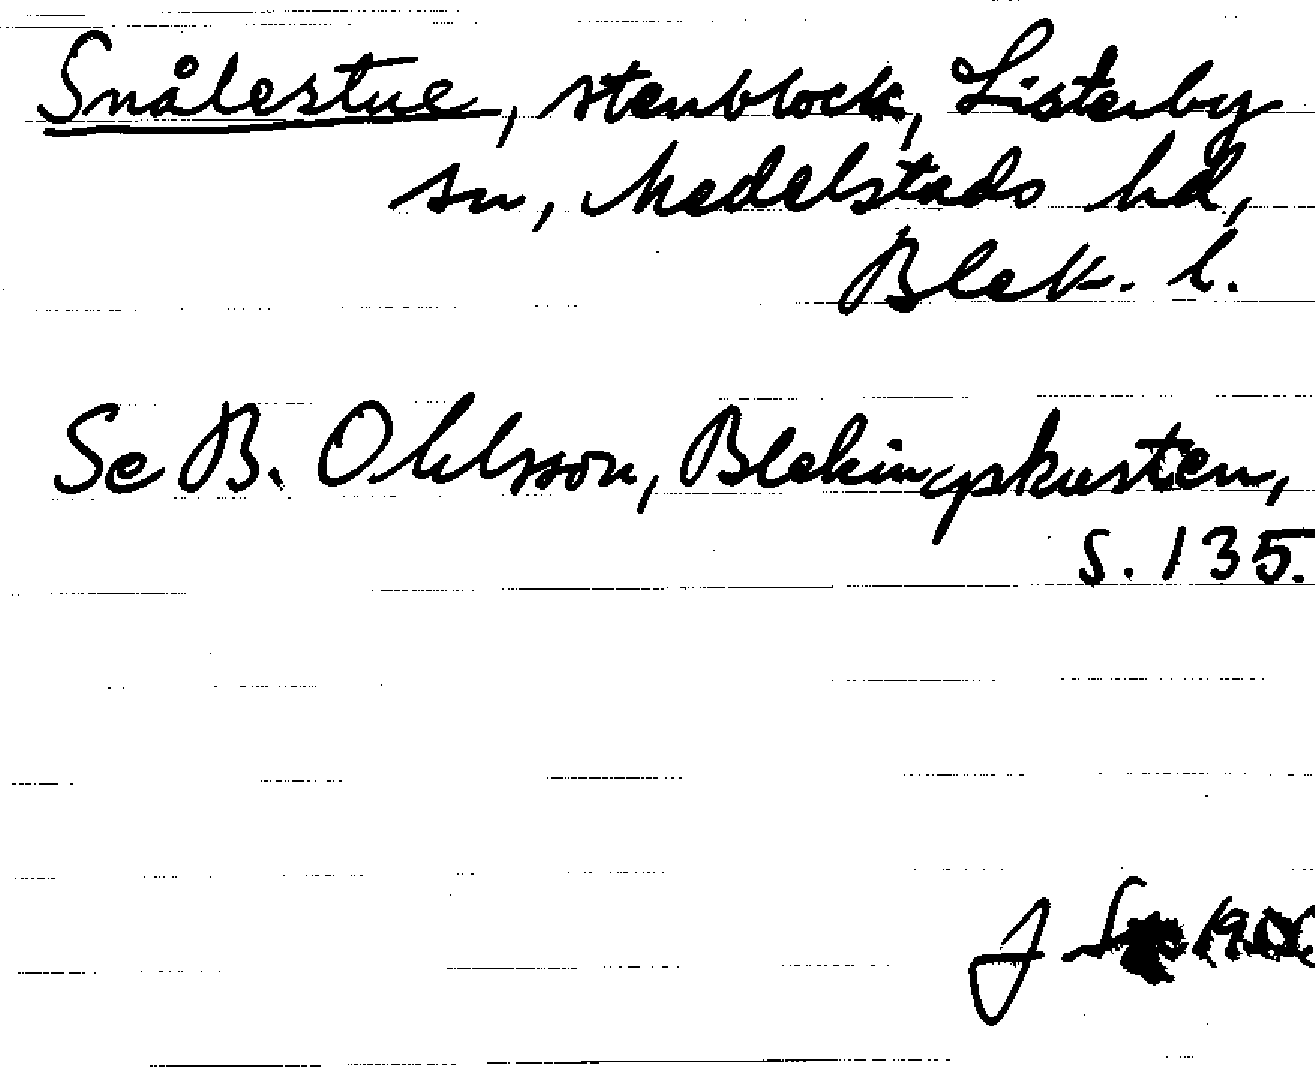 Snålestue, stenblock, Listerby
sn, Medelstads hd,
Blek. l.
Se B. Ohlsson, Blekingskusten,
s. 135.
J